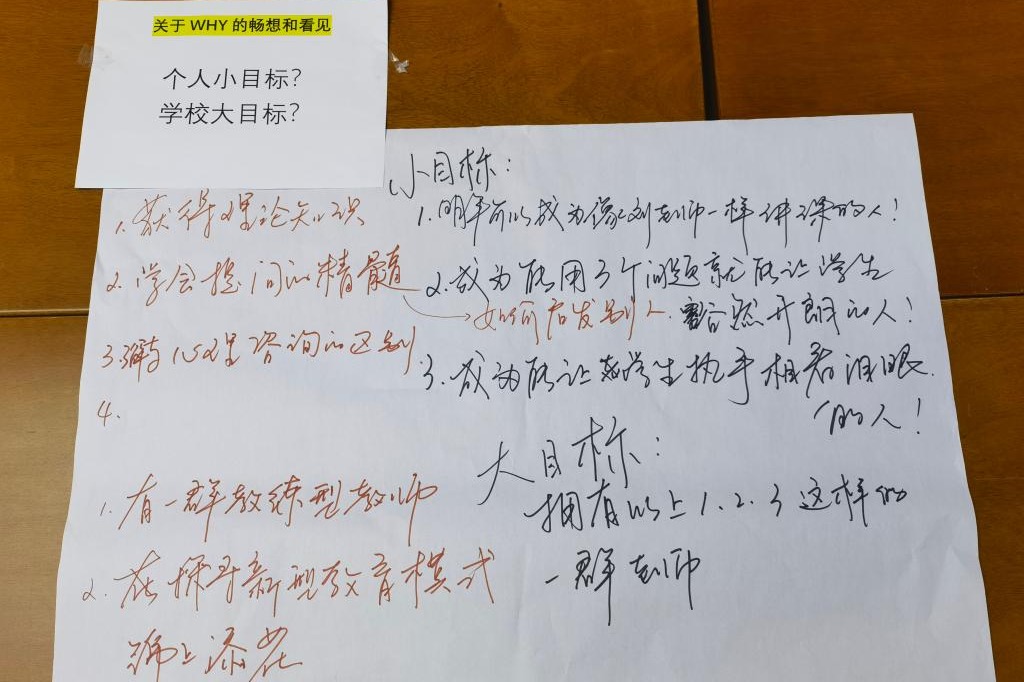 关于 WHY 的畅想和看见
个人小目标？
学校大目标？
1. 获得理论知识
2. 学会提问的精髓
→如何启发别人.
3. 了解与心理咨询的区别
4.
1. 有一群教练型教师
2. 在探寻新型教育模式
锦上添花
小目标：
1. 明年可以成为像刘老师一样讲课的人！
2. 成为能用3个问题就能让学生
豁然开朗的人！
3. 成为能让学生执手相看泪眼
的人！
大目标：
拥有以上1.2.3这样的
一群老师